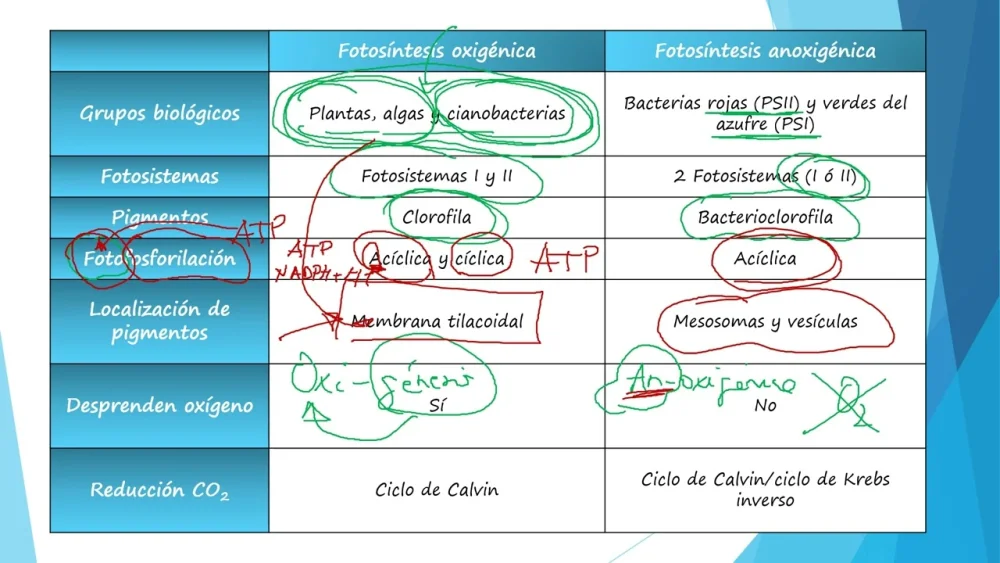 Fotosíntesis oxigénica
Fotosíntesis anoxigénica
Grupos biológicos
Plantas, algas y cianobacterias
Bacterias rojas (PSII) y verdes del
azufre (PSI)
Fotosistemas
Fotosistemas I y II
2 Fotosistemas (I ó II)
Pigmentos
Clorofila
Bacterioclorofila
ATP
Fotofosforilación
ATP
NADPH+H+
Acíclica y cíclica
ATP
Acíclica
Localización de
pigmentos
Membrana tilacoidal
Mesosomas y vesículas
Oxi-génesis
An-oxigénica
Desprenden oxígeno
Sí
No
O2
Reducción CO₂
Ciclo de Calvin
Ciclo de Calvin/ciclo de Krebs
inverso